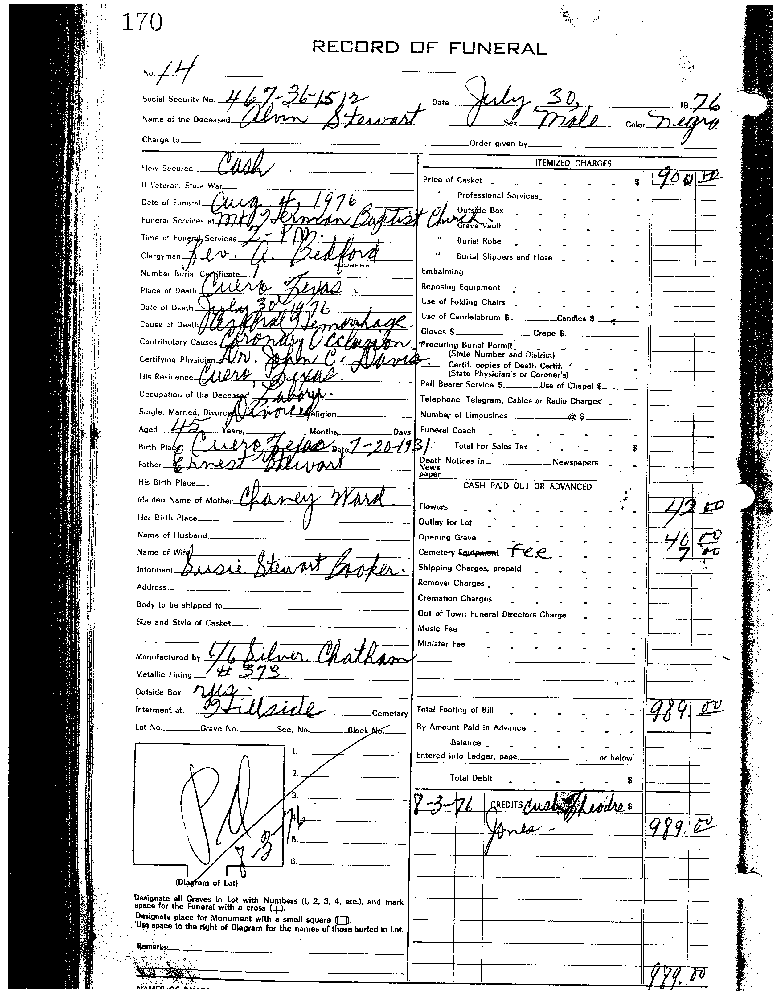 170
RECORD OF FUNERAL
No. 14
Social Security No. 467-36-1512 Date July 30, 1976
Name of the Deceased Alvin Stewart Sex Male Color Negro
Charge to Order given by
How Secured Cash
If Veteran, State War
Date of Funeral Aug 4, 1976
Funeral Services at Mt. Herman Baptist Church
Time of Funeral Services 2- P.M.
Clergyman Rev. A. Bedford
Number Burial Certificate
Place of Death Cuero Texas
Date of Death July 30 1976
Cause of Death Cerebral Hemorrhage
Contributory Causes Coronary Occlusion
Certifying Physician Dr. John C. Davis
His Residence Cuero, Texas
Occupation of the Deceased Labor
Single, Married, Divorced Divorced Religion
Aged 45 Years Months Days
Birth Place Cuero Texas Date 7-20-1931
Father Ernest Stewart
His Birth Place
Maiden Name of Mother Chaney Ward
Her Birth Place
Name of Husband
Name of Wife
Informant Susie Stewart Booker
Address
Body to be shipped to
Size and Style of Casket
Manufactured by 1/6 Silver Chatham
Metallic Lining # 373
Outside Box
Interment at Hillside Cemetary
Lot No. Grave No. Sec. No. Block No.
1.
2.
3.
5.
6.
Pd 8-3-76
(Diagram of Lot)
Designate all Graves in Lot with Numbers (1, 2, 3, 4, etc.), and mark
space for the Funeral with a cross (+).
Designate place for Monument with a small square (□).
Use space to the right of Diagram for the names of those buried in Lot.
Remarks
ITEMIZED CHARGES
Price of Casket $ 900 00
" Professional Services
" Outside Box
" Grave Vault
" Burial Robe
" Burial Slippers and Hose
Embalming
Reposing Equipment
Use of Folding Chairs
Use of Candelabrum $ Candles $
Gloves $ Crepe $
Procuring Burial Permit
(State Number and District)
Certif. copies of Death Certif.
(State Physician's or Coroner's)
Pall Bearer Service $ Use of Chapel $
Telephone, Telegram, Cables or Radio Charges
Number of Limousines @ $
Funeral Coach
Total For Sales Tax $
Death Notices in Newspapers
News
paper
CASH PAID OUT OR ADVANCED
Flowers 42 00
Outlay for Lot
Opening Grave 40 00
Cemetery Equipment Fee 7 00
Shipping Charges, prepaid
Removal Charges
Cremation Charges
Out of Town Funeral Directors Charge
Music Fee
Minister Fee
Total Footing of Bill 989.00
By Amount Paid in Advance
Balance
Entered into Ledger, page or below
Total Debit $
8-3-76 CREDITS Cash Theodre $
Jones 989.00
989.00